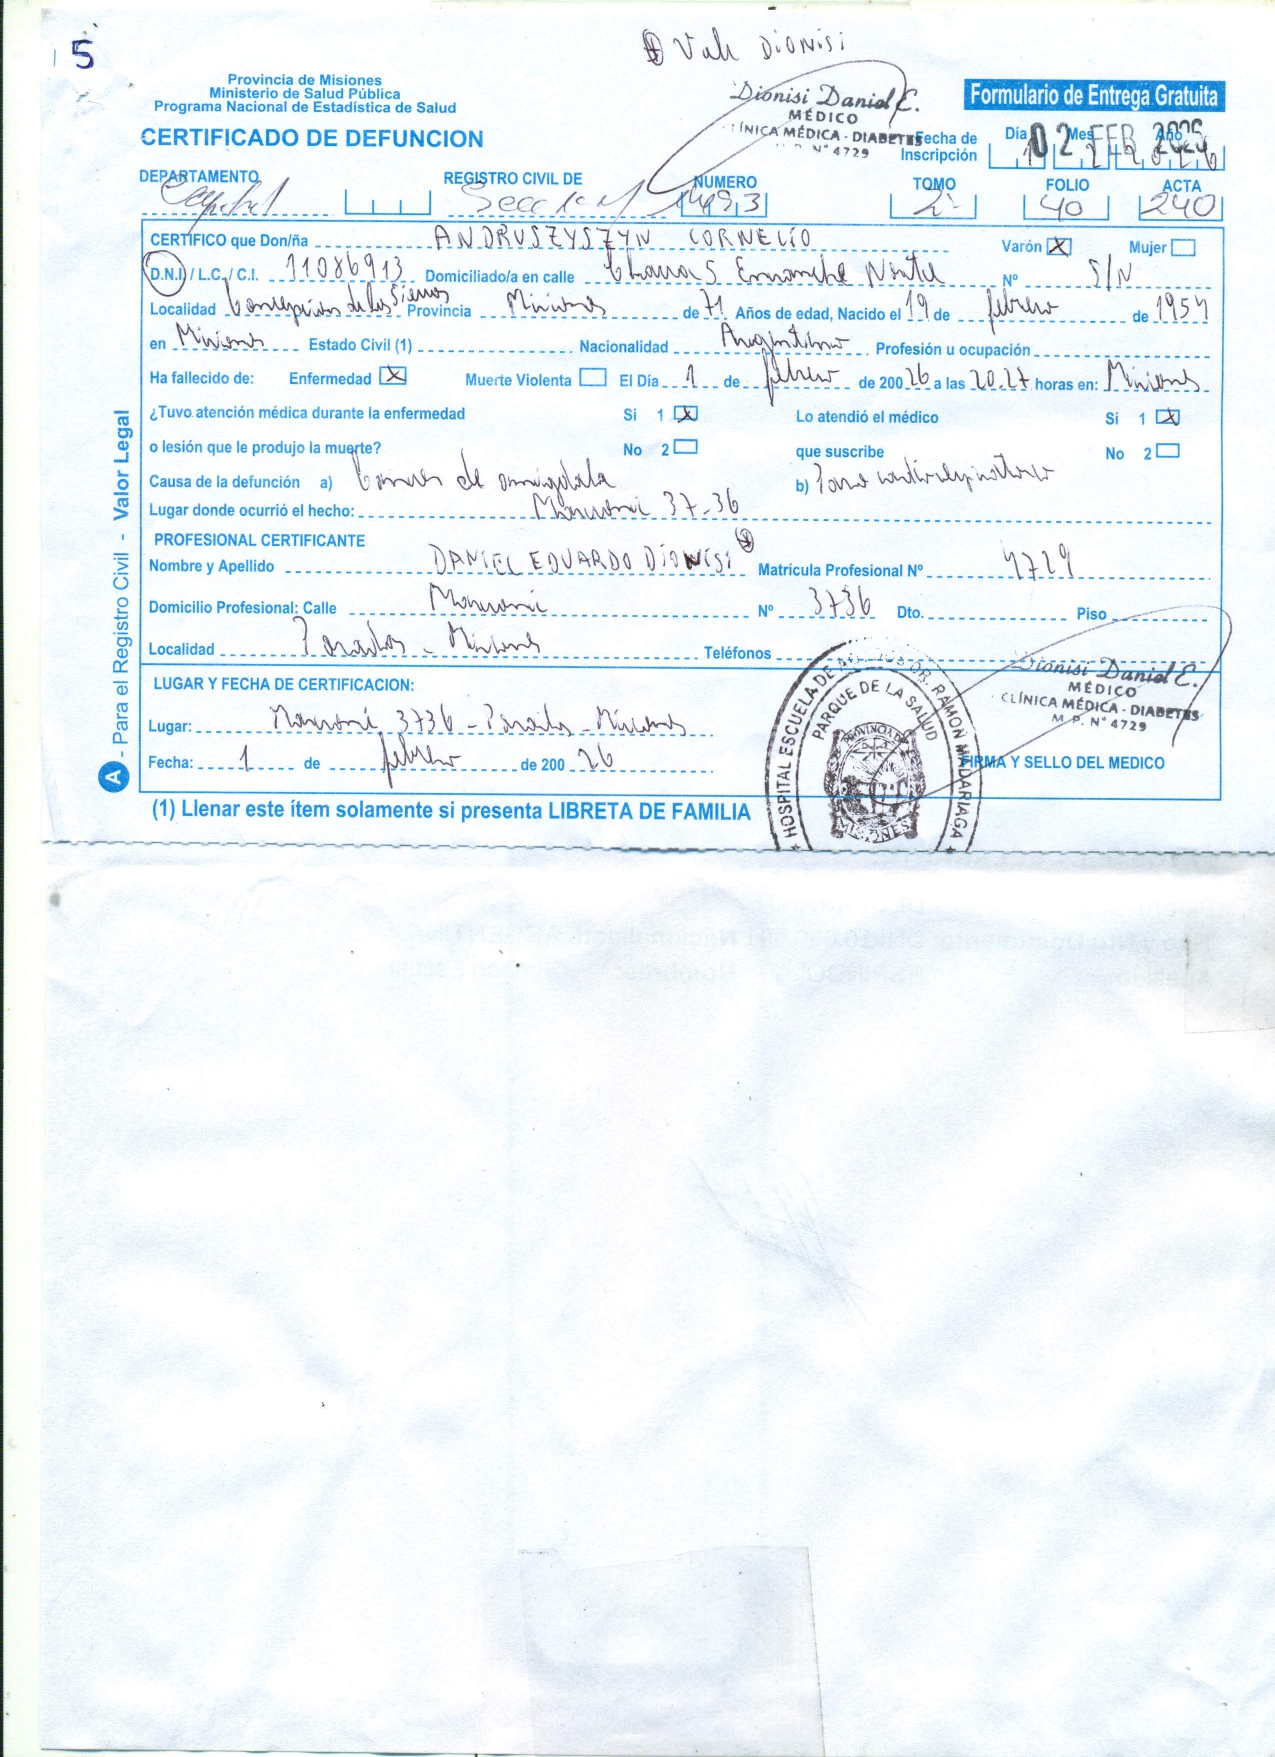 5
⊕ Vale DIONISI
Provincia de Misiones
Ministerio de Salud Pública
Programa Nacional de Estadística de Salud
CERTIFICADO DE DEFUNCION
Dionisi Daniel E.
MÉDICO
CLÍNICA MÉDICA - DIABETES
M.P. N° 4729
Formulario de Entrega Gratuita
Fecha de Inscripción Día Mes Año 02 FEB 2026
DEPARTAMENTO Capital REGISTRO CIVIL DE Secc 1a NUMERO TOMO 2 FOLIO 40 ACTA 240
CERTIFICO que Don/ña ANDRUSZYSZYN CORNELIO Varón X Mujer
D.N.I / L.C./ C.I. 11086913 Domiciliado/a en calle Nº S/N
Localidad Concepción de la Sierra Provincia Misiones de 71 Años de edad, Nacido el 19 de febrero de 1954
en Misiones Estado Civil (1) Nacionalidad Argentino Profesión u ocupación
Ha fallecido de: Enfermedad X Muerte Violenta El Día 1 de febrero de 200 26 a las 20.27 horas en: Misiones
¿Tuvo atención médica durante la enfermedad Sí 1 X Lo atendió el médico Sí 1 X
o lesión que le produjo la muerte? No 2 que suscribe No 2
Causa de la defunción a) Cancer de amigdala b) Paro cardiorespiratorio
Lugar donde ocurrió el hecho: Marconi 37-36
PROFESIONAL CERTIFICANTE
Nombre y Apellido DANIEL EDUARDO DIONISI ⊕ Matrícula Profesional Nº 4729
Domicilio Profesional: Calle Marconi Nº 3736 Dto. Piso
Localidad Posadas - Misiones Teléfonos
LUGAR Y FECHA DE CERTIFICACION:
Lugar: Marconi 3736 - Posadas - Misiones
Fecha: 1 de febrero de 200 26
Dionisi Daniel E.
MÉDICO
CLÍNICA MÉDICA - DIABETES
M.P. N° 4729
FIRMA Y SELLO DEL MEDICO
HOSPITAL ESCUELA DE AGUDOS DR. RAMON MADARIAGA
PARQUE DE LA SALUD
PROVINCIA DE
MISIONES
(1) Llenar este ítem solamente si presenta LIBRETA DE FAMILIA
A - Para el Registro Civil - Valor Legal